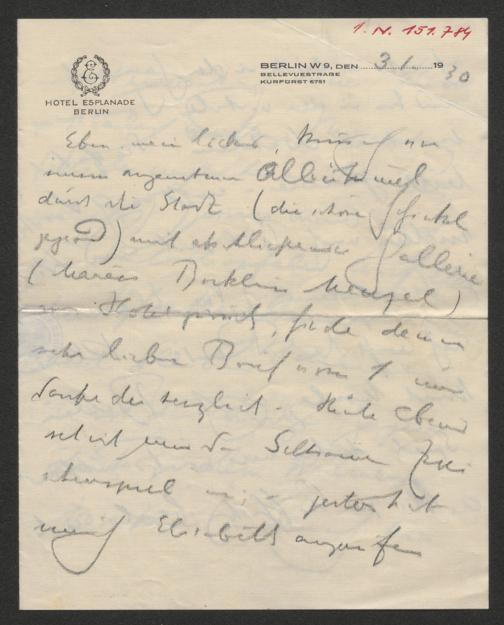 I. N. 151.784
E
HOTEL ESPLANADE
BERLIN
BERLIN W 9, DEN 3 1. 1930
BELLEVUESTRAßE
KURFÜRST 6761
Eben, mein lieber,
einem angenehmen
durch die Stadt (die schöne
gegend) mit abschliessender Gallerie
(Marées Böcklin Menzel)
ins Hotel zurück, finde deinen
sehr lieben Brief vom 1. und
danke dir herzlich. Heute Abend
seh ich mir das Seltsame Zwi
schenspiel an, gestern hat
mich Elisabeth angerufen